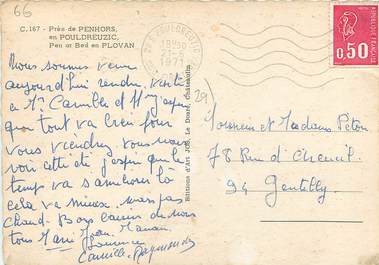 66
C. 167 - Près de PENHORS,
en POULDREUZIC,
Pen ar Bed en PLOVAN
Nous sommes venu
aujourd'hui rendre visite
à Mr Camille
que tout va bien pour
vous viendrez vous nous
voir cette été j'espère que le
temps va s'améliorer là
cela va mieux mais pas
chaud. Bons baisers de nous
tous
Laurence
Camille Raymonde
Editions d'Art JOS, Le Doaré, Châteaulin
29
POULDREUZIC
1971
RÉPUBLIQUE FRANÇAISE
0,50
Monsieur et Madame Péton
78 Rue d'
94 Gentilly